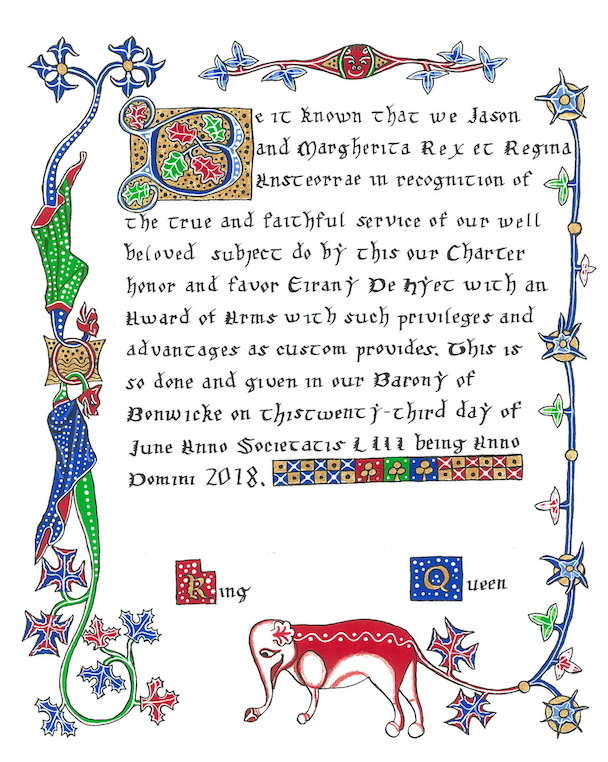 Be it known that we Jason
and Margherita Rex et Regina
Ansteorrae in recognition of
the true and faithful service of our well
beloved subject do by this our Charter
honor and favor Eirany De Hyet with an
Award of Arms with such privileges and
advantages as custom provides. This is
so done and given in our Barony of
Bonwicke on thistwenty-third day of
June Anno Societatis LIII being Anno
Domini 2018.
King Queen